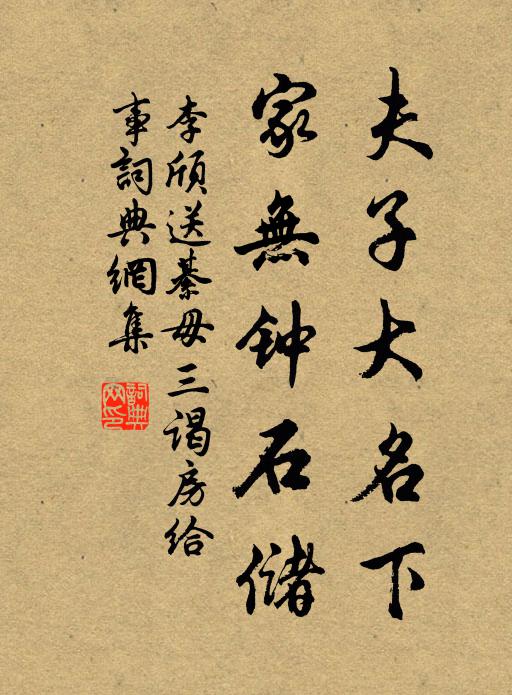 夫子大名下
家無钟石儲
李頎送綦毋三谒房给
事詞典網集
詞典网印